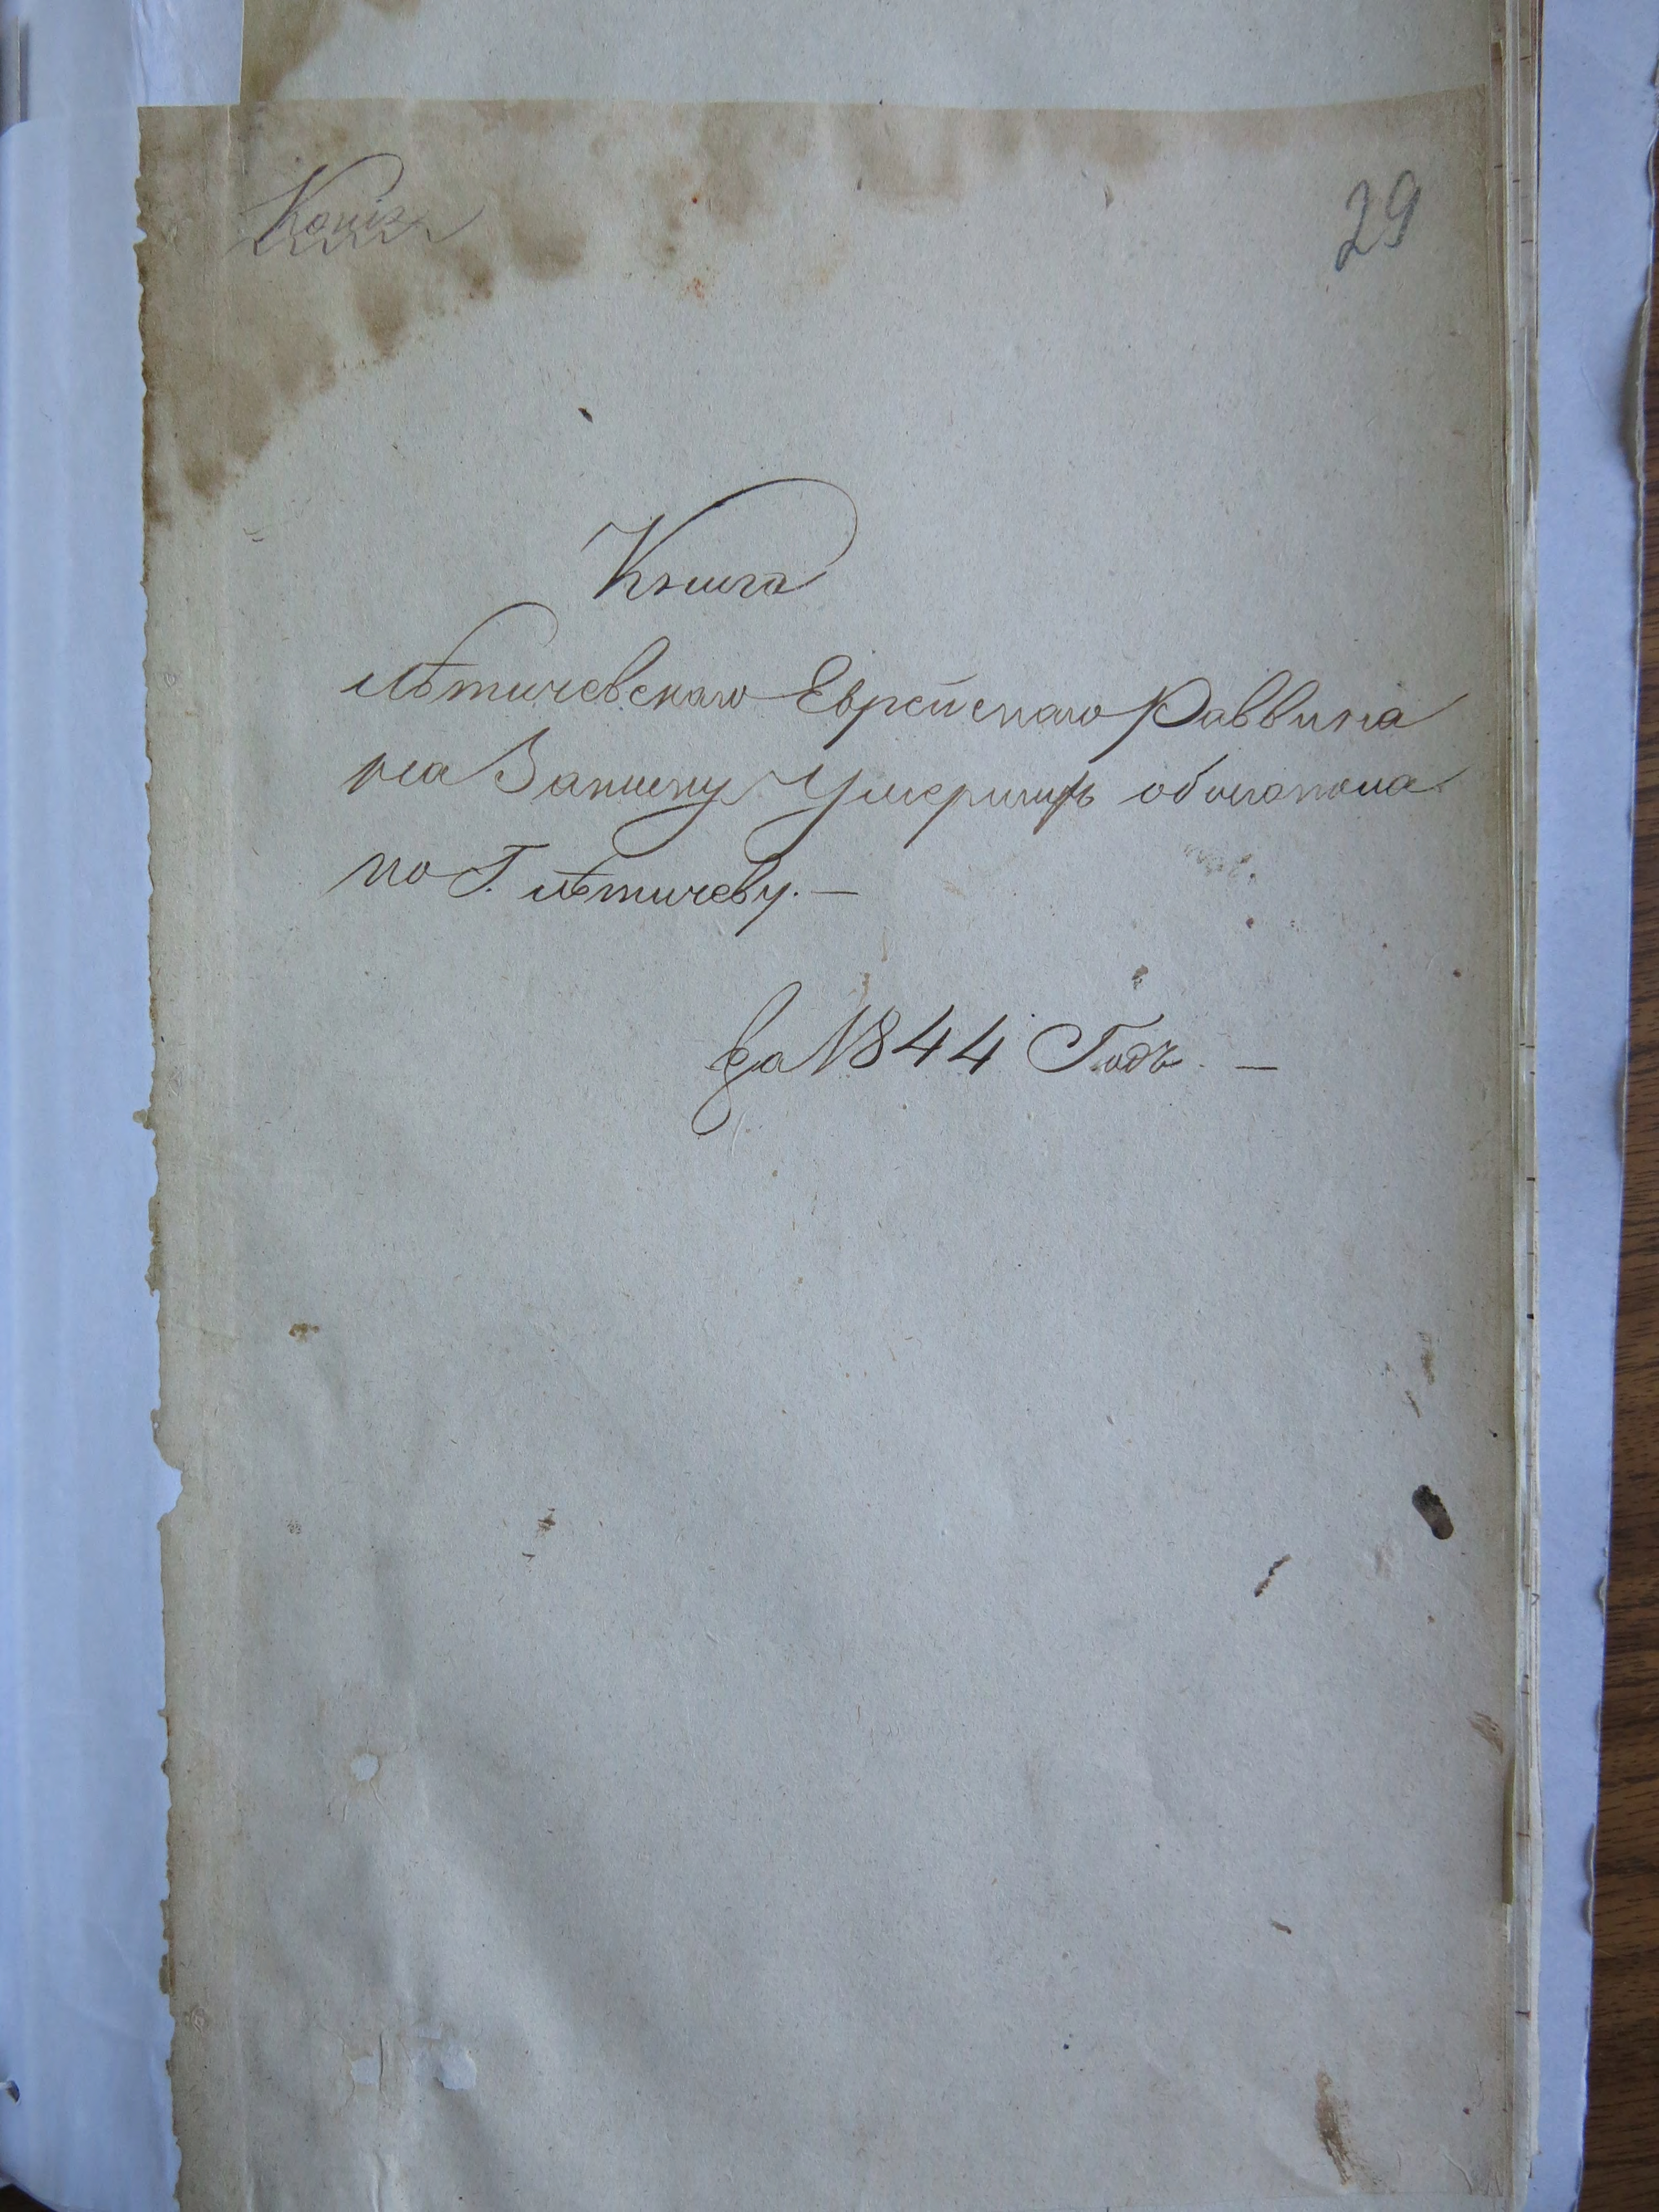 Копія
29
Книга
Лѣтичевскаго Еврейскаго Раввина
на Записку Умершихъ обоегопола
по Г. Лѣтичеву. —
За 1844 Годъ. —